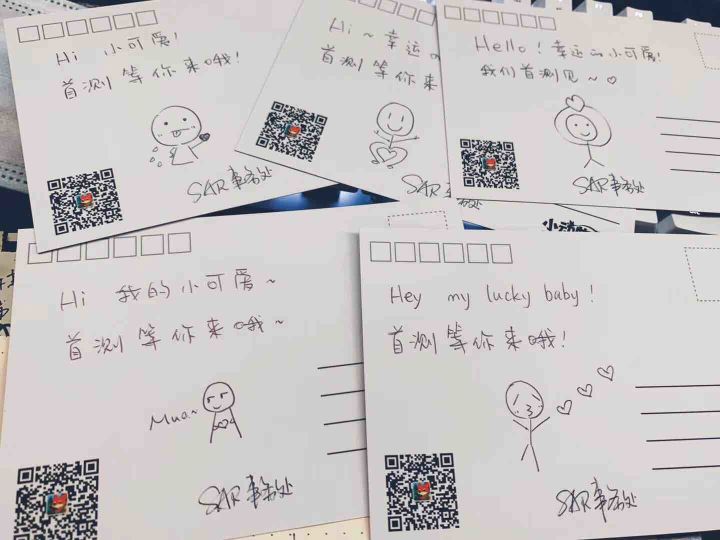 Hi 小可爱!
首测等你来哦!
SAR事务处
Hi ~ 幸运
首测等你来
SAR
Hello! 幸运的小可爱!
我们首测见~♡
SAR事务处
Hi 我的小可爱~
首测等你来哦~
Mua~
SAR事务处
Hey my lucky baby!
首测等你来哦!
SAR事务处